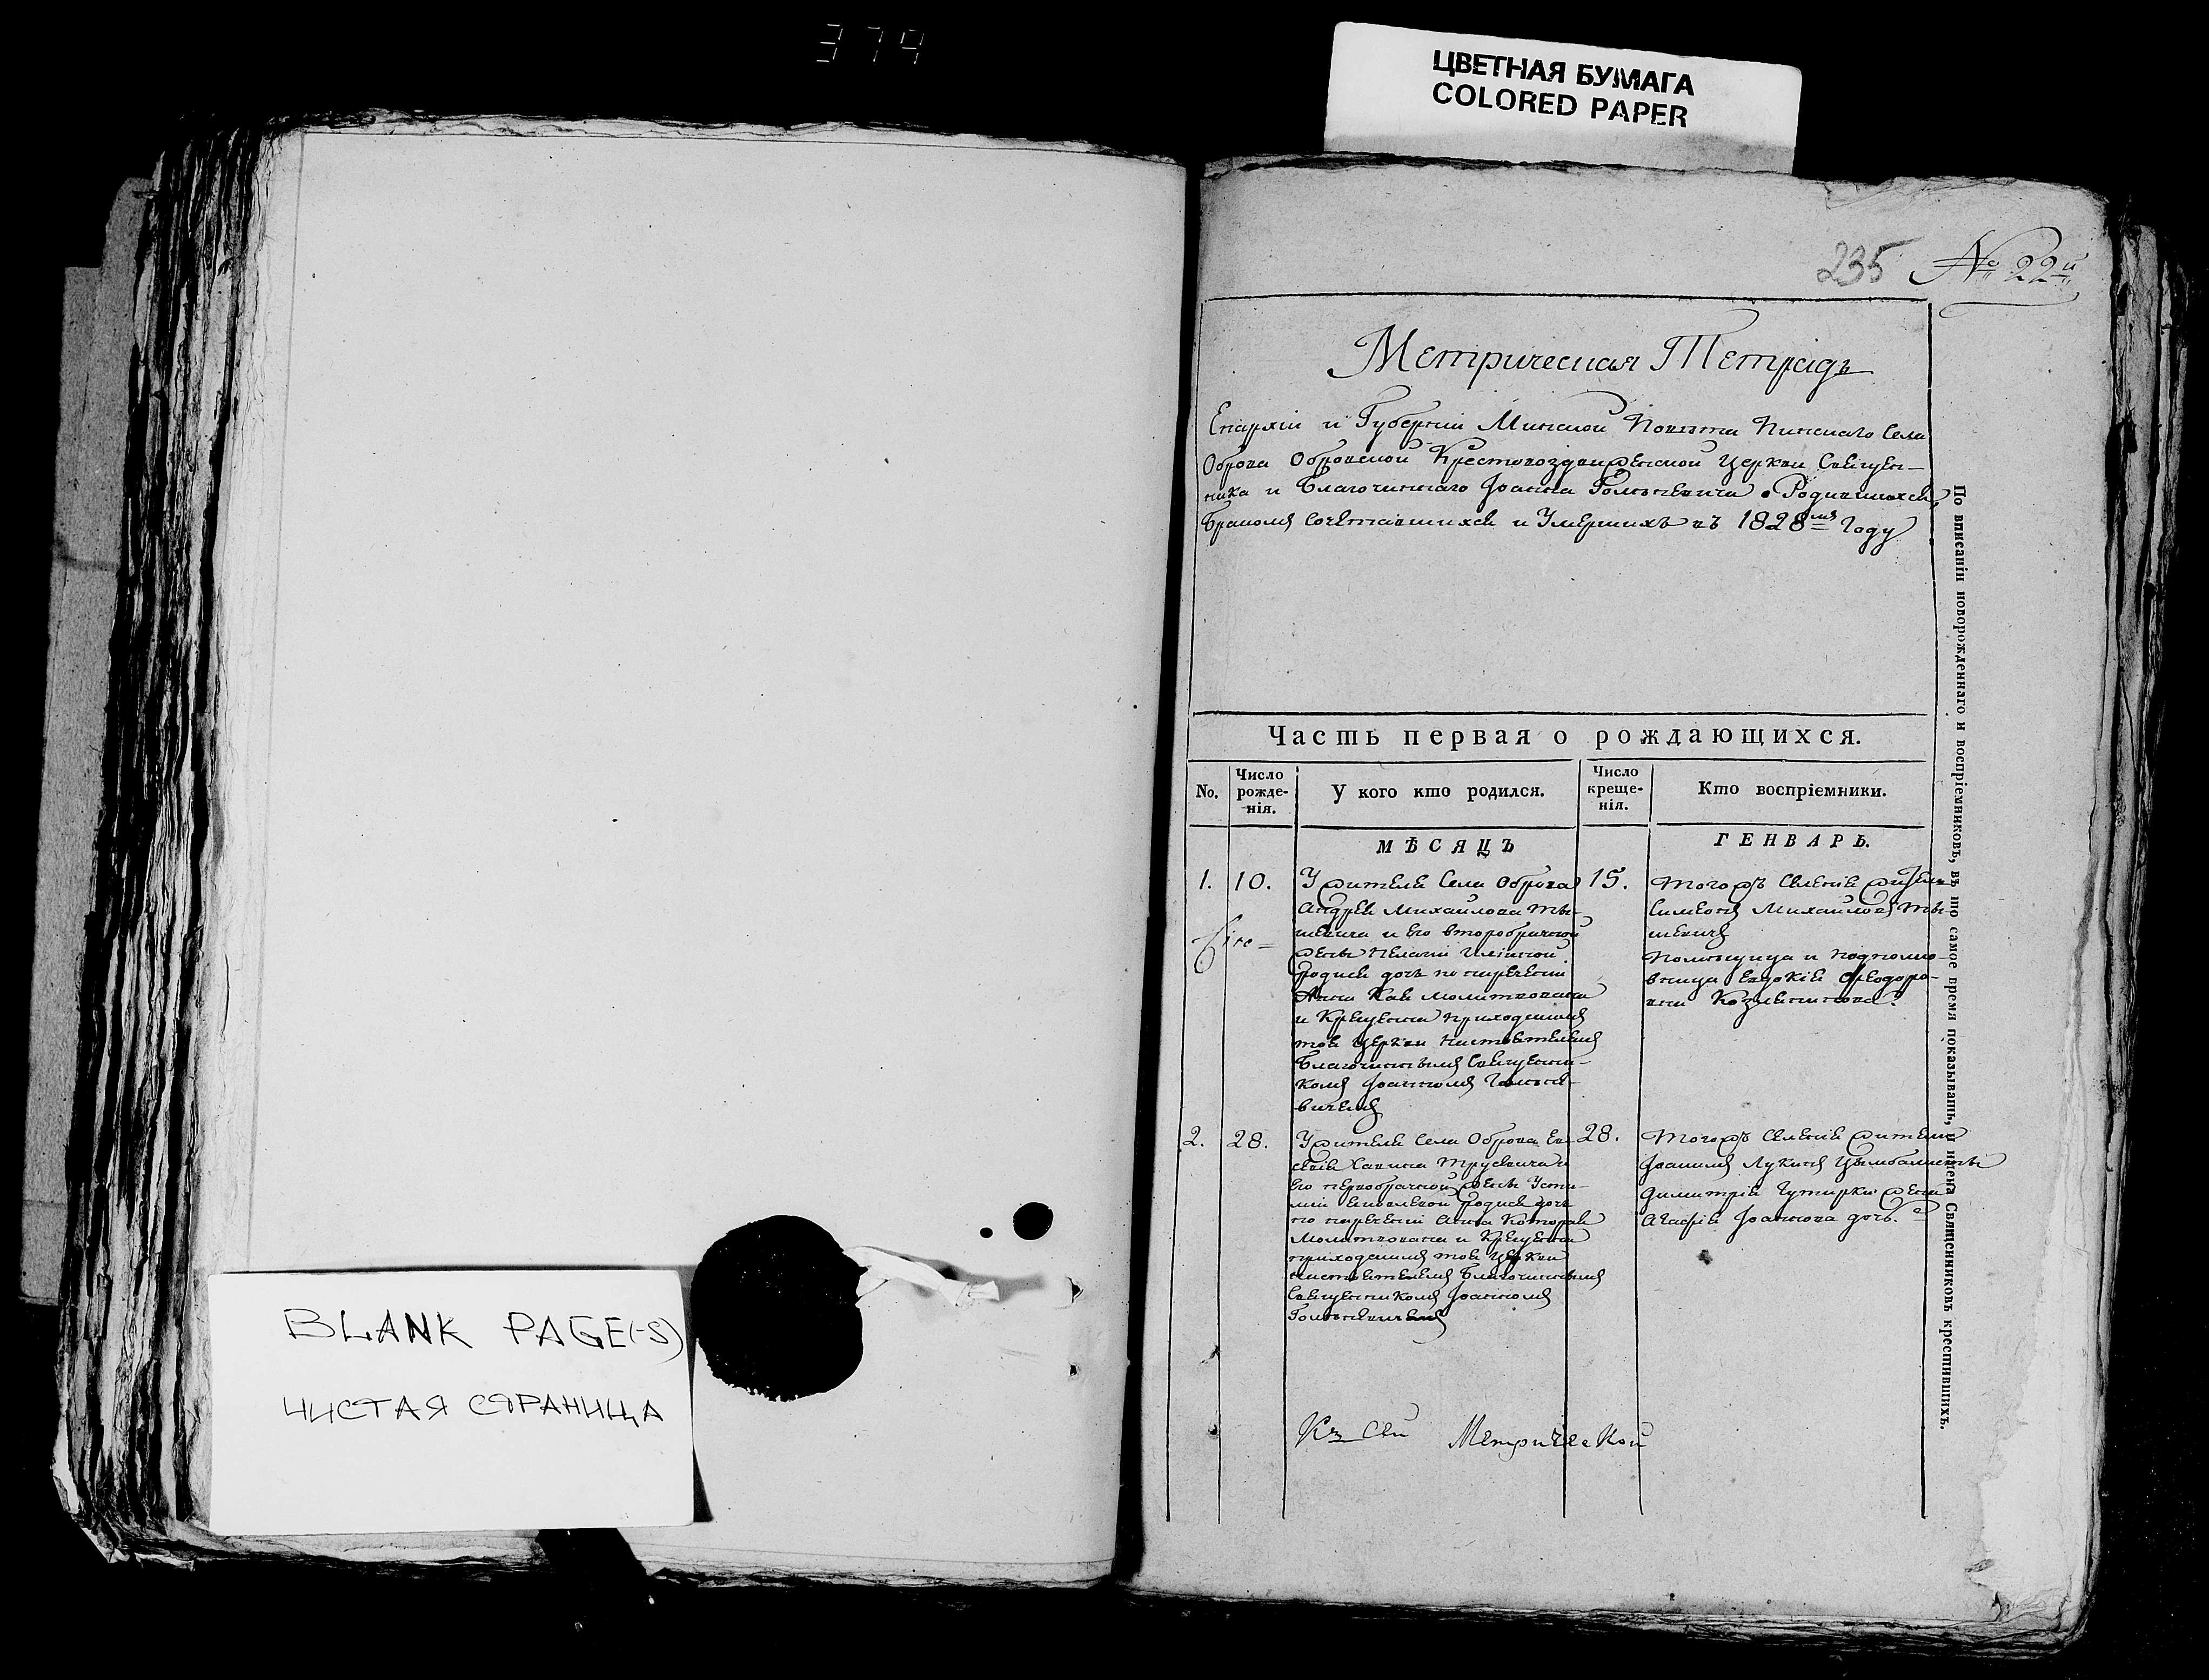 379
ЦВЕТНАЯ БУМАГА
COLORED PAPER
235 № 22й
Метрическая Тетрадь
Епархіи и Губерніи Минской Повѣта Пинскаго Села
Оброва Обровской Крестовоздвиженской Церкви Священ-
ника и Благочиннаго Іоанна о Родившихся,
Бракомъ Сочетавшихся и Умершихъ въ 1828мъ Году
Часть первая о рождающихся.
No.
Число рожде-нія.
У кого кто родился.
Число креще-нія.
Кто воспріемники.
МѢСЯЦЪ
ГЕНВАРЬ.
1. 10.
У жителя Села Оброва
Андрея Михайлова
и его второбрачной
жены
родися дочь по нареченіи
Анна молитвована
и Крещенна приходскимъ
тоя Церкви Настоятелемъ
Благочиннымъ Священни-
комъ Іоанномъ
вичемъ
15.
тогожъ Селенія
Симеонъ Михайловъ
Помѣщица и подполко-
вница Евдокія Ѳеодоро-
вна
2. 28.
У жителя Села Оброва
его первобрачной жены Усти-
родися дочь
по нареченіи Анна Которая
Молитвована и Крещенна
приходскимъ тоя Церкви
Настоятелемъ Благочиннымъ
Священникомъ Іоанномъ
28.
тогожъ Селенія жители
Іоаннъ Лукинъ
Димитрія жена
Агафія Іоаннова дочь.
Къ Сей Метрической
По вписаніи новорожденнаго и воспріемниковъ, въ то самое время показывать, и имена Священниковъ крестившихъ.
BLANK PAGE(-S)
ЧИСТАЯ СТРАНИЦА